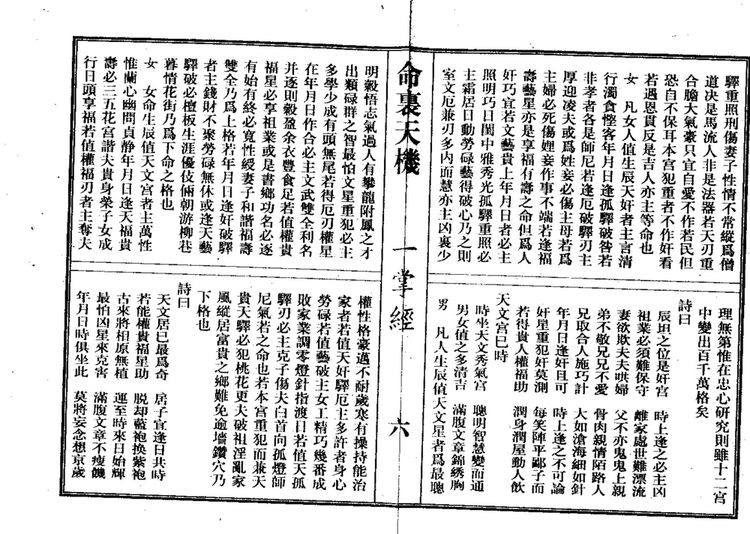 驛重照刑傷妻子性情不常縱爲僧
道決是馬流人非是法器若天刃重
合膽大氣豪只宜自愛不作若民但
恐自不保耳本宮犯重者不作奸看
若遇恩貴反是吉人亦主等命也
女 凡女人值生辰天奸者主言清
行濁食慳客年月日逢孤驛破咎若
非孝者各是師尼若逢厄破驛刃主
厚迎凌夫或爲姓妾必傷主母若爲
主婦必死傷娌妾作事不端若逢福
壽藝星亦是享福有壽之命但爲人
奸巧宜若文藝貴上年月日者必主
照明巧日閨中雅秀光孤驛重照必
主霜居日動勞碌藝得破心乃之則
室文厄兼刃多內而慧亦主凶衰少
理無第惟在忠心研究則雖十二宮
中變出百千萬格矣
詩曰
辰垣之位是奸宮 時上逢之必主凶
祖業必須難保守 離家處世難漂流
妻欲欺夫夫哄婦 父不亦鬼鬼上親
弟不敬兄兄不愛 骨肉親情陌路人
兄取合人施巧計 大如滄海細如針
年月日逢奸且可 時上逢之不可論
奸星重犯奸莫測 每笑陣平鄙子而
若得貴人權福助 潤身潤屋動人飲
天文宮巳時
時坐天文秀氣宮 聰明智慧變而通
男女值之多清吉 滿腹文章錦綉胸
男 凡人生辰值天文星者爲最聰
命裏天機 一掌經 六
明穀悟志氣過人有攀龍附鳳之才
出類碌群之智最怕文星重犯必主
多學少成有頭無尾若得厄刃權星
在年月日作合必主文武雙全利名
并逐則穀盈余衣豐食足若值權貴
福星必享祖業或是書鄉功名必逐
有始有終必寬性緩妻子和諧福壽
雙全乃爲上格若年月日逢奸破驛
者主錢財不聚勞碌無休或逢天藝
驛破必檀板生涯優伎倆朝游柳巷
暮情花街乃爲下命之格也
女 女命生辰值天文宮者主萬性
惟蘭心幽問貞静年月日逢天福貴
壽必三五花宮諧夫貴身榮子女成
行日頭享福若值權福刃者主奪夫
權性格豪邁不耐歲寒有操持能治
家者若值天奸驛厄主多許者身心
勞碌若值藝破主女工精巧幾番成
敗家業調零燈針指渡日若值天孤
驛刃必主克子傷夫白首向孤燈師
尼氣若之命也若本宮重犯而兼天
貴天驛必犯桃花更夫破祖淫亂家
風縱居富貴之鄉難免逾墻鑽穴乃
下格也
詩曰
天文居巳最爲奇 居子宜逢日共時
若能權貴福星助 脱却藍袍換紫袍
古來將相原無植 運至時來日始輝
最怕凶星來克害 滿腹文章不瘦饑
年月日時俱坐此 莫將妄念想京歲